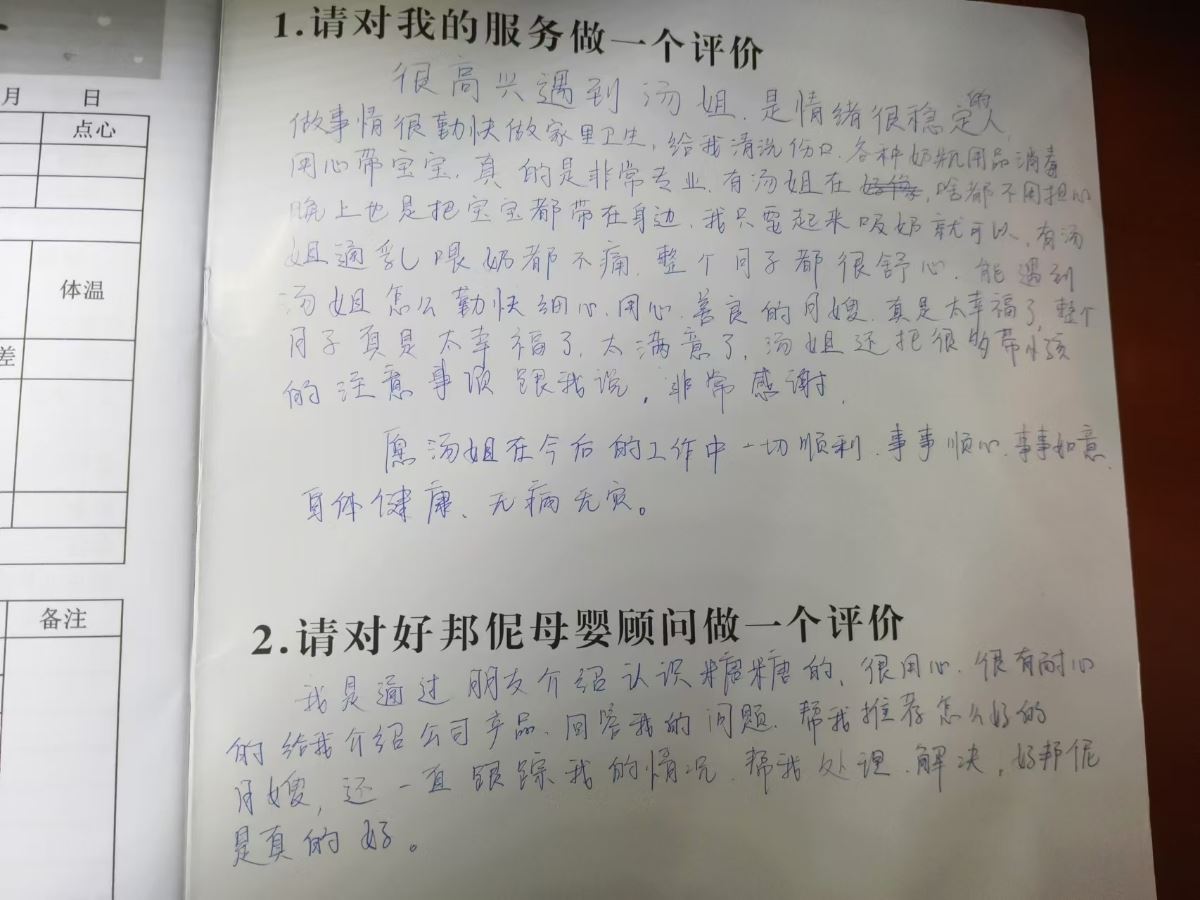 月 日
点心
体温
差
备注
1.请对我的服务做一个评价
很高兴遇到汤姐.是情绪很稳定的人,
做事情很勤快做家里卫生,给我清洗伤口.各种奶瓶用品消毒
用心带宝宝.真的是非常专业.有汤姐在,啥都不用担心
晚上也是把宝宝都带在身边.我只要起来吸奶就可以,有汤
姐通乳喂奶都不痛.整个月子都很舒心.能遇到
汤姐怎么勤快细心.用心.善良的月嫂.真是太幸福了,整个
月子真是太幸福了.太满意了,汤姐还把很多带小孩
的注意事项跟我说,非常感谢.
愿汤姐在今后的工作中一切顺利.事事顺心.事事如意.
身体健康、无病无灾。
2.请对好邦伲母婴顾问做一个评价
我是通过朋友介绍认识糖糖的,很用心.很有耐心
的给我介绍公司产品.回答我的问题.帮我推荐怎么好的
月嫂,还一直跟踪我的情况.帮我处理.解决,好邦伲
是真的好。